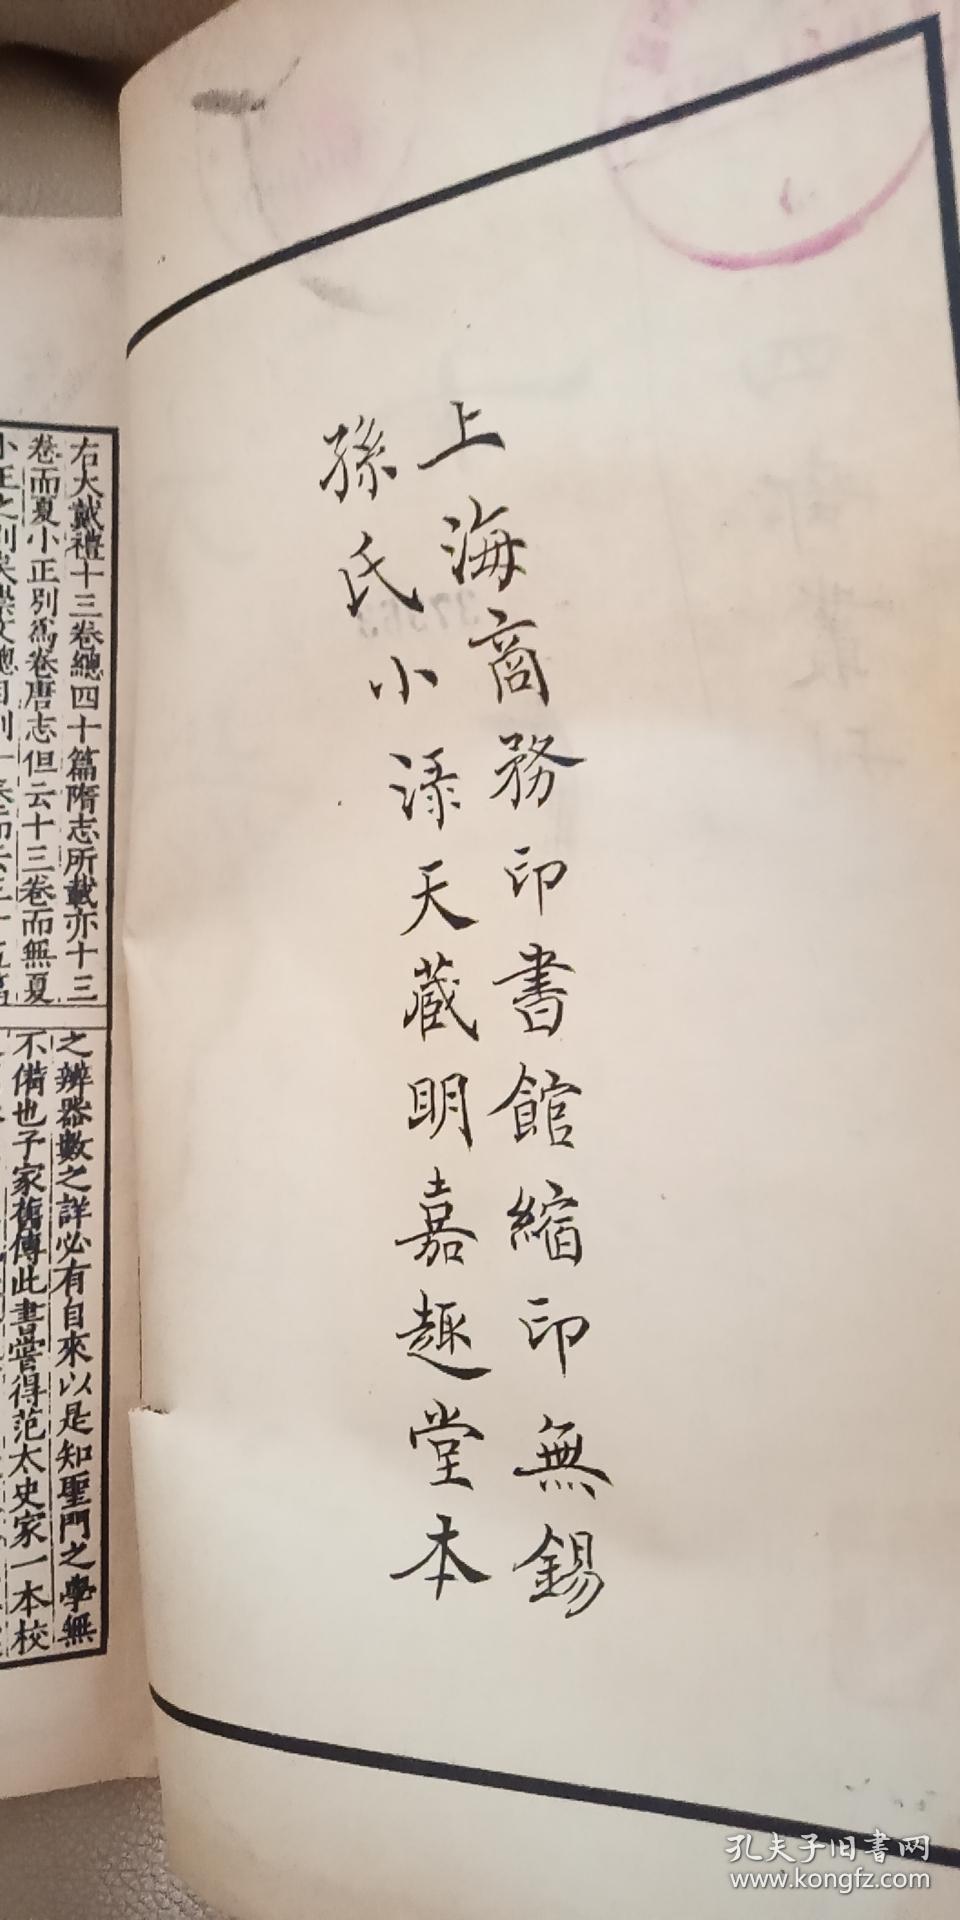 上海商務印書館縮印無錫
孫氏小渌天藏明嘉趣堂本
右大戴禮十三卷總四十篇隋志所載亦十三
卷而夏小正别爲卷唐志但云十三卷而無夏
之辨器數之詳必有自來以是知聖門之學無
不備也予家舊傳此書嘗得范太史家一本校
孔夫子旧書网
www.kongfz.com